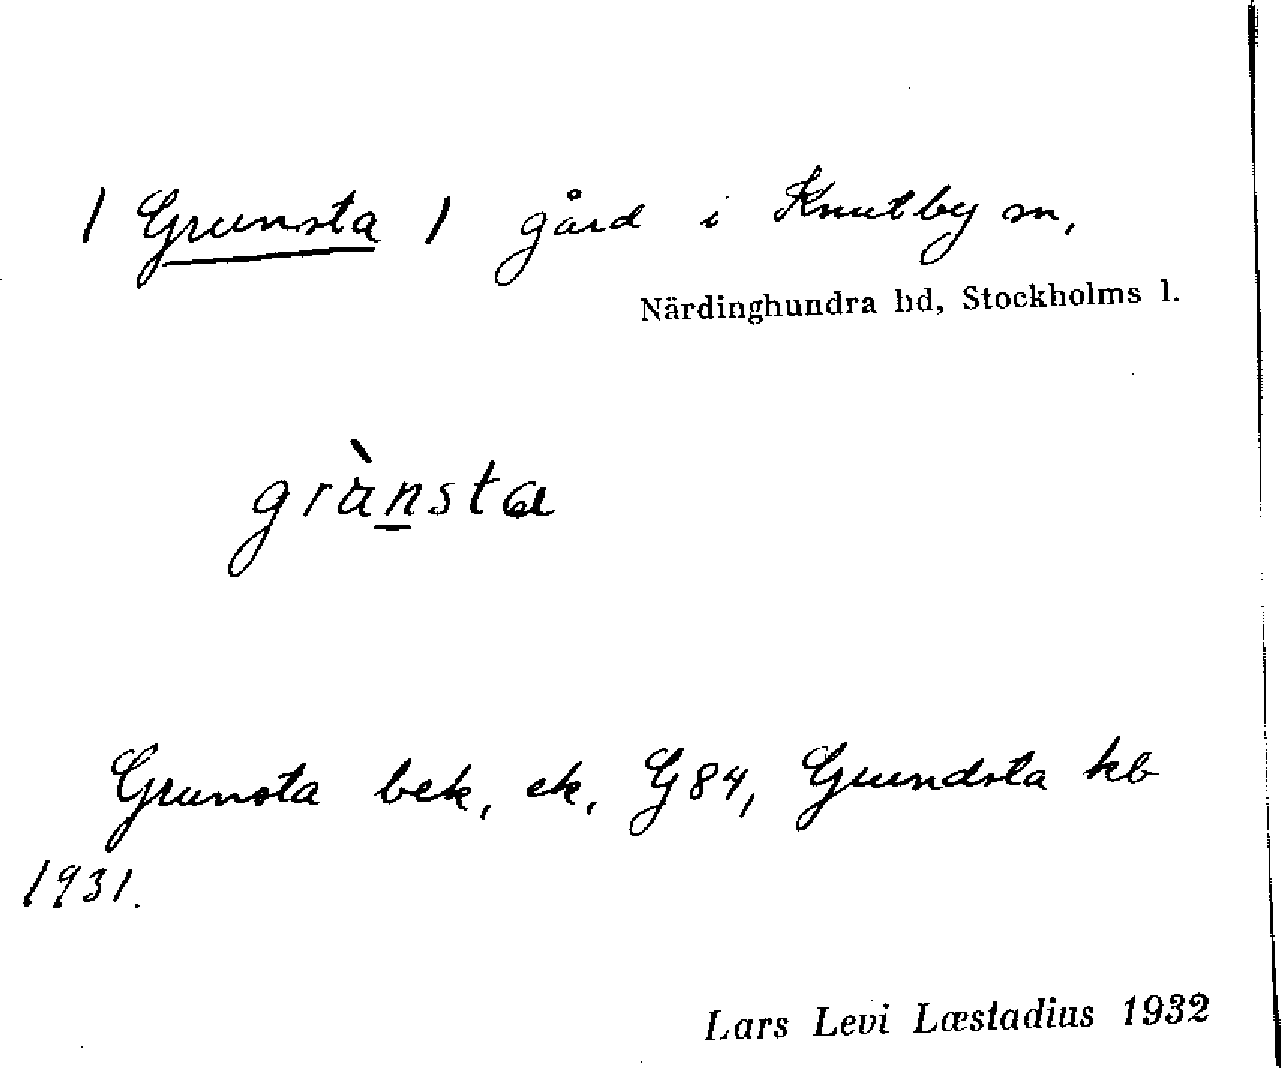 / Grunsta / gård i Knutby sn,
Närdinghundra hd, Stockholms l.
grànsta
Grunsta bek, ek, G84, Grundsta kb
1931.
Lars Levi Læstadius 1932